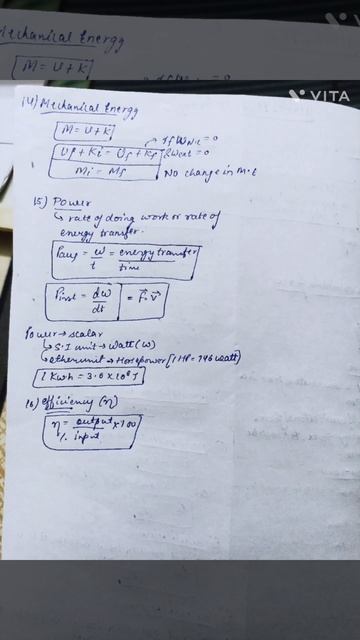 Mechanical Energy
M = U + K
VITA
14) Mechanical Energy
M = U + K
If WN.C = 0
Uf + Ki = Uf + Kf
& Wext = 0
Mi = Mf
No change in M.E
15) Power
↳ rate of doing work or rate of
energy transfer.
Pavg = w/t = energy transfer/time
Pinst = dw/dt = F⃗.v⃗
Power → scalar
↳ S.I unit → watt (w)
↳ other unit → Horsepower [1 HP = 746 watt)
1 Kwh = 3.6 × 10⁶ J
16) efficiency (η)
η % = output/input × 100